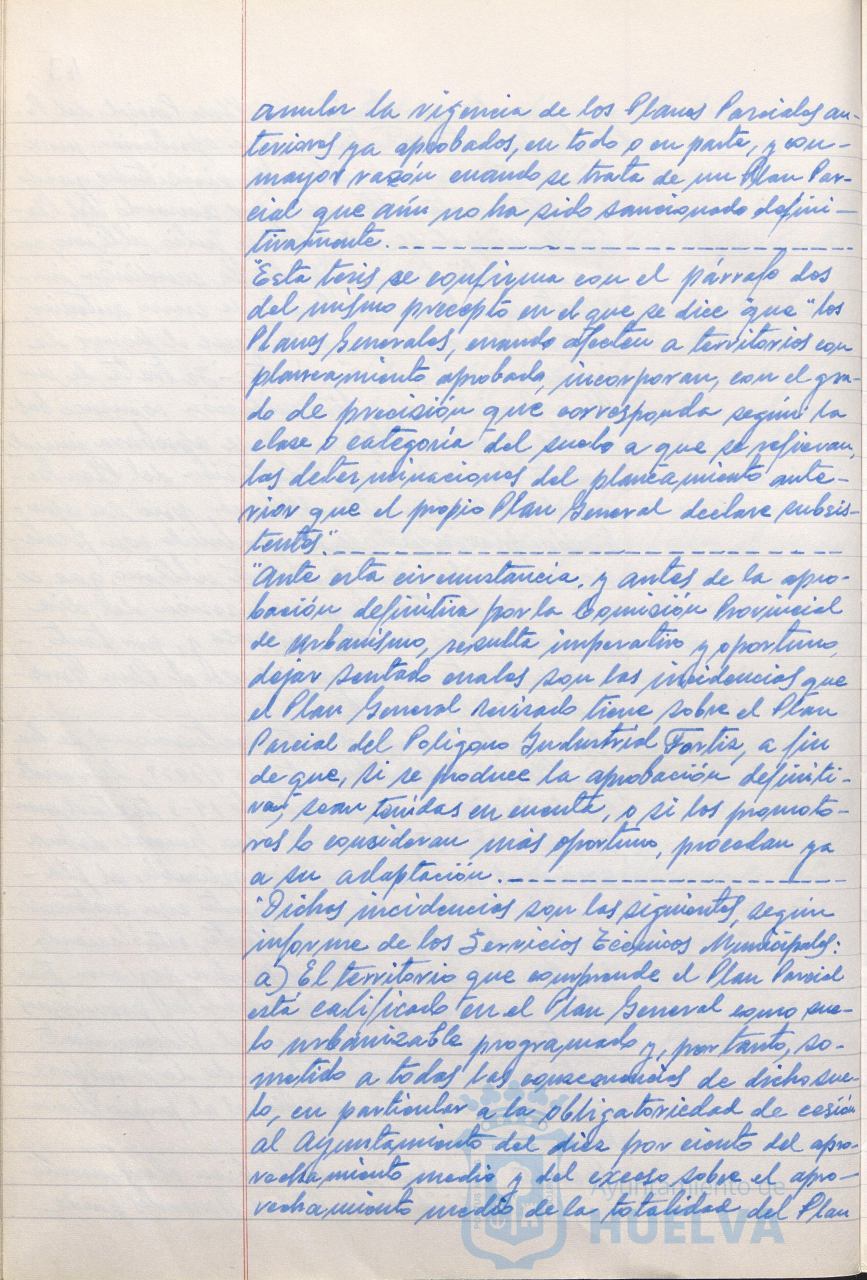 anular la vigencia de los Planes Parciales an-
teriores ya aprobados, en todo o en parte, y con-
mayor razón cuando se trata de un Plan Par-
cial que aún no ha sido sancionado defini-
tivamente.
"Esta tesis se confirma con el párrafo dos
del mismo precepto en el que se dice que "los
Planes Generales, cuando afecten a territorios con
planeamiento aprobado, incorporan, con el gra-
do de precisión que corresponda según la
clase o categoría del suelo a que se refieran,
las determinaciones del planeamiento ante-
rior que el propio Plan General declare subsis-
tentes".
"Ante esta circunstancia, y antes de la apro-
bación definitiva por la Comisión Provincial
de Urbanismo, resulta imperativo y oportuno,
dejar sentado cuales son las incidencias que
el Plan General revisado tiene sobre el Plan
Parcial del Polígono Industrial Fortiz, a fin
de que, si se produce la aprobación definiti-
va, sean tenidas en cuenta, o si los promoto-
res lo consideran más oportuno, procedan ya
a su adaptación.
"Dichas incidencias son las siguientes, según
informe de los Servicios Técnicos Municipales:
a) El territorio que comprende el Plan Parcial
está calificado en el Plan General como sue-
lo urbanizable programado y, por tanto, so-
metido a todas las consecuencias de dicho sue-
lo, en particular a la obligatoriedad de cesión
al Ayuntamiento del diez por ciento del apro-
vechamiento medio y del exceso sobre el apro-
vechamiento medio de la totalidad del Plan
Ayuntamiento de
HUELVA